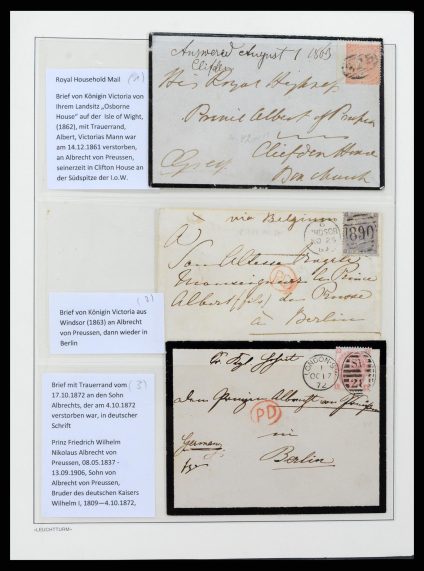 Royal Household Mail (1)
Brief von Königin Victoria von
ihrem Landsitz „Osborne
House" auf der Isle of Wight,
(1862), mit Trauerrand,
Albert, Victorias Mann war
am 14.12.1861 verstorben,
an Albrecht von Preussen,
seinerzeit in Clifton House an
der Südspitze der I.o.W.
Answered August 1 1863
Cliefden
His Royal Highness
Prince Albert of Prussia
Cliefden House
Grey
(2)
Brief von Königin Victoria aus
Windsor (1863) an Albrecht
von Preussen, dann wieder in
Berlin
via Belgium
A
Son Altesse Royale
Monseigneur le Prince
Albert (fils) de Prusse
à Berlin
WINDSOR
NO 25
63
890
PD
Brief mit Trauerrand vom (3)
17.10.1872 an den Sohn
Albrechts, der am 4.10.1872
verstorben war, in deutscher
Schrift
Prinz Friedrich Wilhelm
Nikolaus Albrecht von
Preussen, 08.05.1837 -
13.09.1906, Sohn von
Albrecht von Preussen,
Bruder des deutschen Kaisers
Wilhelm I, 1809—4.10.1872,
Albrecht von Preussen
in
Berlin
Germany
PD
LONDON·S
1
OC 17
72
21
»LEUCHTTURM«